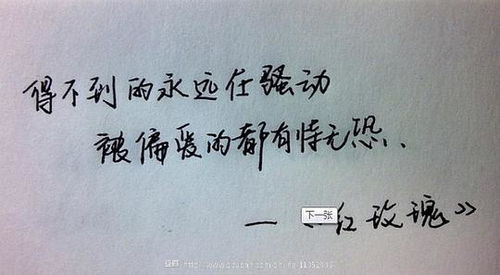 得不到的永远在骚动
被偏爱的都有恃无恐.
—《红玫瑰》
下一张